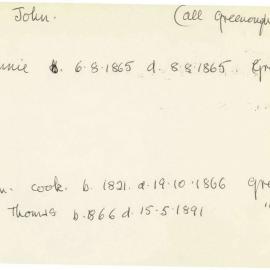 John. (all Greenough
nnie b. 6.8.1865 d. 8.8.1865. Gre
n. Cook. b. 1821. d. 19.10.1866 gre
Thomas b. 866 d. 15-5-1891 "